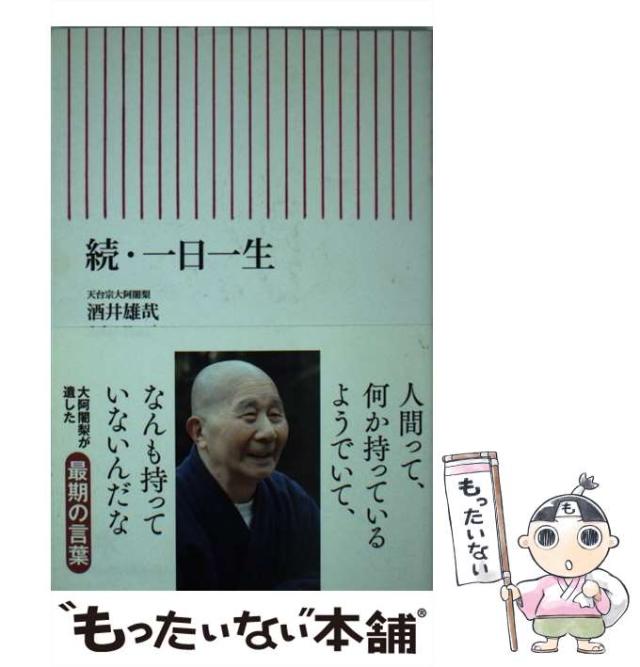 続・一日一生
天台宗大阿闍梨
酒井雄哉
人間って、
何か持っている
ようでいて、
なんも持って
いないんだな
大阿闍梨が
遺した
最期の言葉
も
もったいない
“もったいない”本舗®